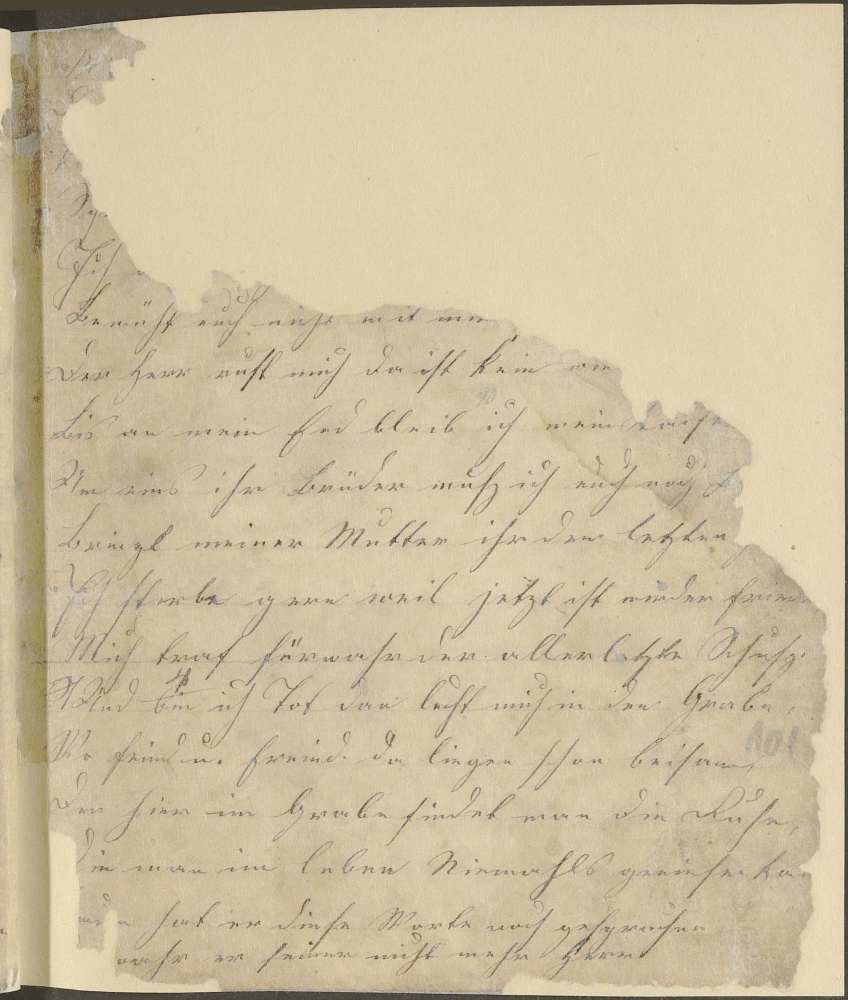 Ich
Bemüht euch nicht mit
Der Herr ruft mich da ist kein
bis an mein End bleib ich
Um eins ihr Brüder muß ich euch noch
bringt meiner Mutter ihr den letzten
Ich sterbe gern weil jetzt ist wieder
Mich traf fürwahr der allerletzte Schuß
Und bin ich Tot dan legt mich in den Grabe
Wo feind u. freind da liegen schon beisam
Den hier im Grabe findet man die Ruhe,
Die man im leben Niemahls
hat er diese Worte noch gesprochen
wahr er seiner nicht mehr Herr
101